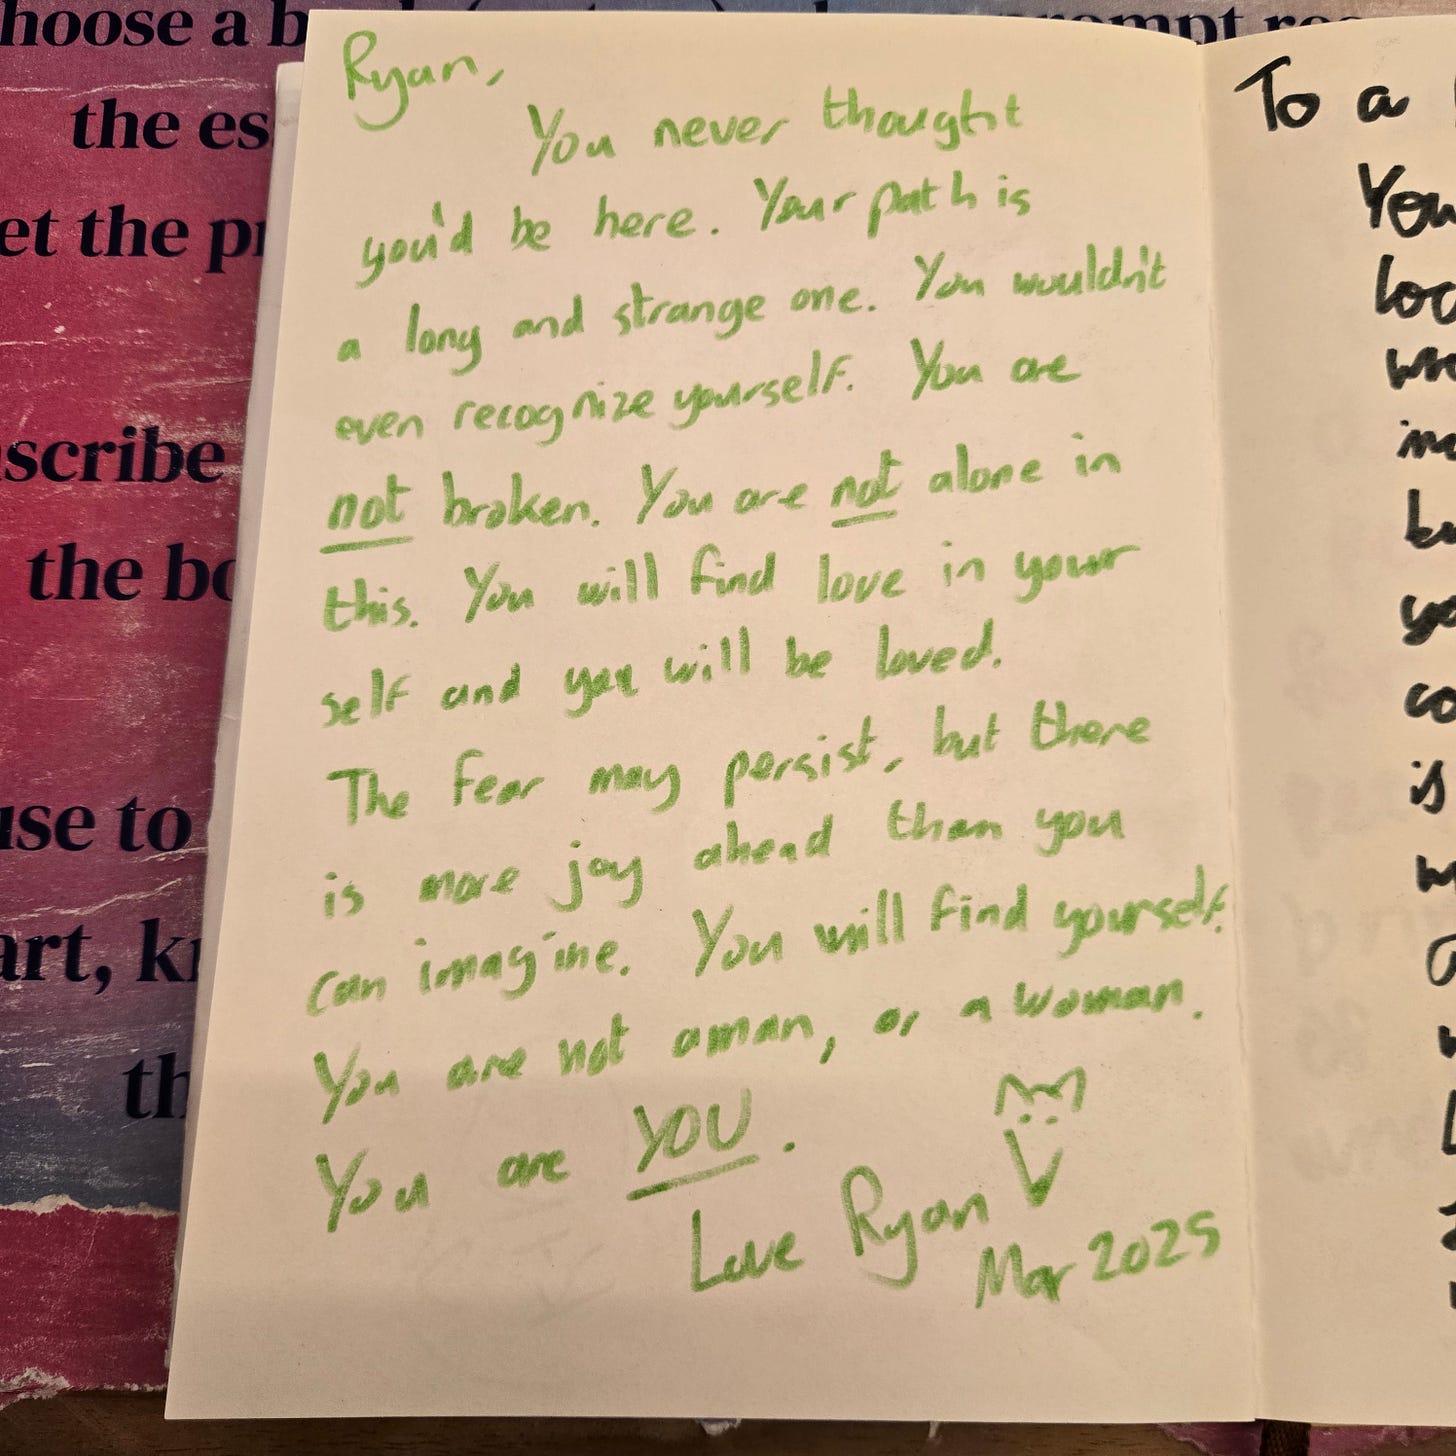 hoose a b
prompt re
the es
et the pr
scribe
the bo
use to
art, k
th
Ryan,
You never thought
you'd be here. Your path is
a long and strange one. You wouldn't
even recognize yourself. You are
not broken. You are not alone in
this. You will find love in your
self and you will be loved.
The fear may persist, but there
is more joy ahead than you
can imagine. You will find yourself.
You are not a man, or a woman.
You are YOU.
Love Ryan
Mar 2025
To a
You
loc
we
in
bu
yo
co
is